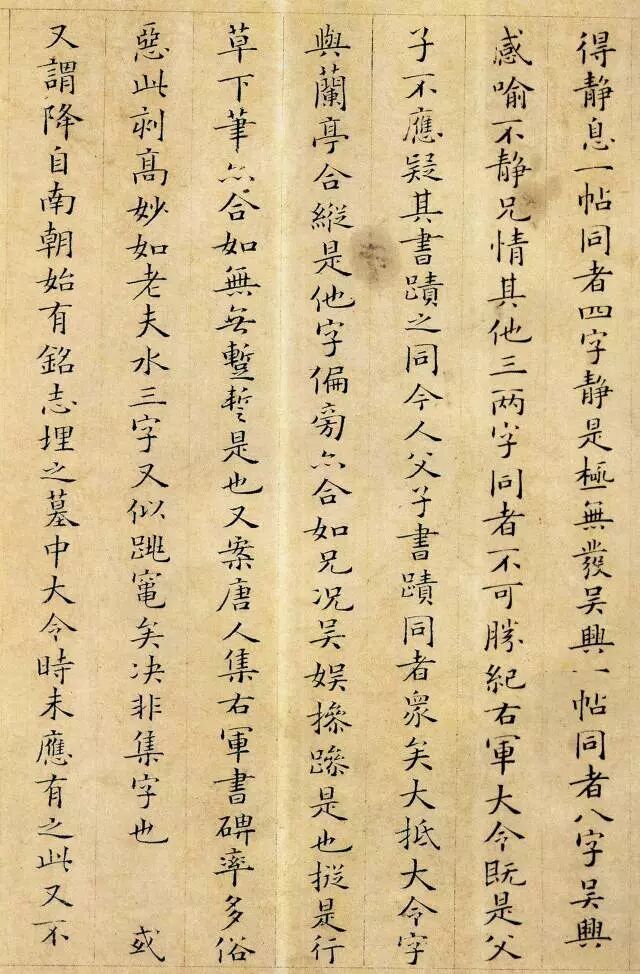 得静息一帖同者四字静是極無發吴興一帖同者八字吴興
感喻不静兄情其他三两字同者不可勝紀右軍大令既是父
子不應疑其書蹟之同今人父子書蹟同者衆矣大抵大令字
與蘭亭合縱是他字偏旁亦合如兄况吴娱摻蹘是也摐是行
草下筆亦合如無無蹔誓是也又案唐人集右軍書碑率多俗
惡此刻高妙如老夫水三字又似跳竄矣决非集字也 或
又謂降自南朝始有銘志埋之墓中大令時未應有之此又不